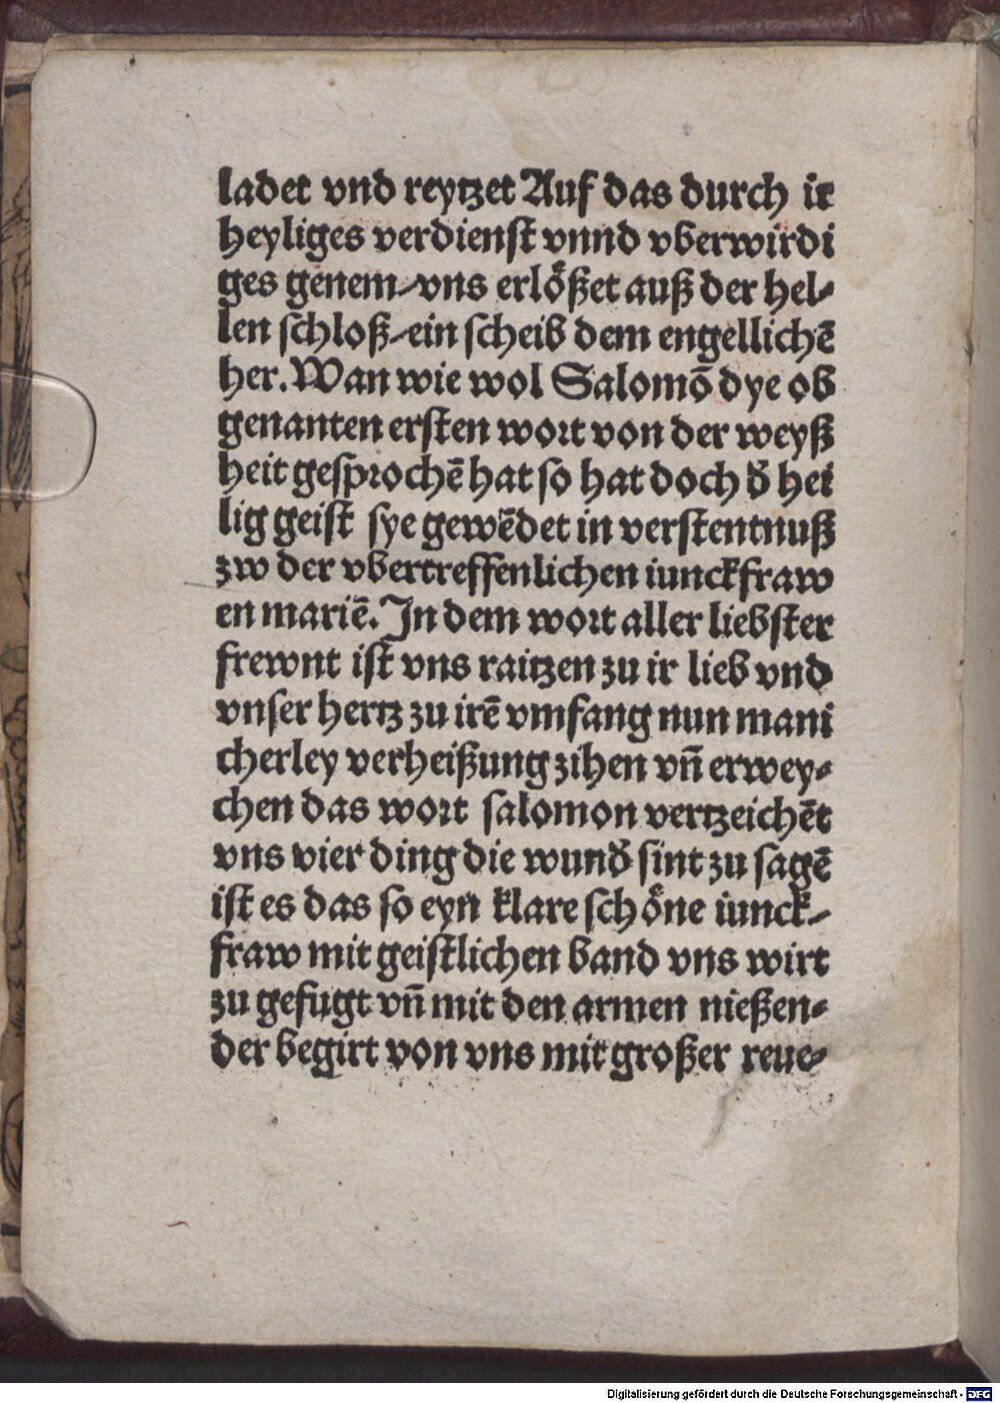 ladet vnd reytzet Auf das durch ir
heyliges verdienst vnnd vberwirdi
ges genem/vns erlößet auß der hel⸗
len schloß/ein scheib dem engellichē
her. Wan wie wol Salomō dye ob
genanten ersten wort von der weyß
heit gesprochē hat so hat doch d̕ hei
lig geist sye gewēdet in verstentnuß
zw der vbertreffenlichen iunckfraw
en mariē. In dem wort aller liebster
frewnt ist vns raitzen zu ir lieb vnd
vnser hertz zu irē vmfang nun mani
cherley verheißung zihen vn̄ erwey⸗
chen das wort salomon vertzeichēt
vns vier ding die wund̕ sint zu sagē
ist es das so eyn klare schöne iunck⸗
fraw mit geistlichen band vns wirt
zu gefugt vn̄ mit den armen nießen⸗
der begirt von vns mit großer reue⸗
Digitalisierung gefördert durch die Deutsche Forschungsgemeinschaft - DFG